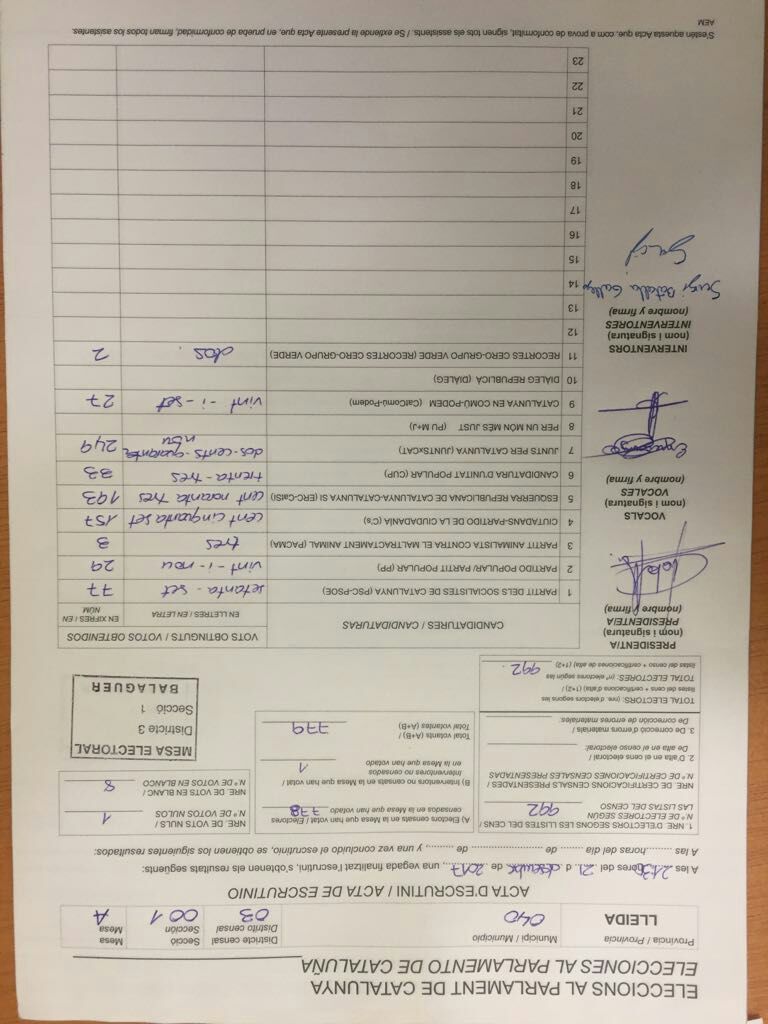 ELECCIONS AL PARLAMENT DE CATALUNYA
ELECCIONES AL PARLAMENTO DE CATALUÑA
Província / Provincia
LLEIDA
Municipi / Municipio
040
Districte censal
Distrito censal
03
Secció
Sección
001
Mesa
Mesa
A
ACTA D'ESCRUTINI / ACTA DE ESCRUTINIO
A les 21:30 hores del 21 d desembre de 2017, una vegada finalitzat l'escrutini, s'obtenen els resultats següents:
A las ........ horas del día ........ de ........ de ........, y una vez concluido el escrutinio, se obtienen los siguientes resultados:
1. NRE. D'ELECTORS SEGONS LES LLISTES DEL CENS /
N.º DE ELECTORES SEGÚN
LAS LISTAS DEL CENSO 992
NRE. DE CERTIFICACIONS CENSALS PRESENTADES /
N.º DE CERTIFICACIONES CENSALES PRESENTADAS
2. D'alta en el cens electoral /
De alta en el censo electoral:
3. De correcció d'errors materials /
De corrección de errores materiales:
TOTAL ELECTORS: (nre. d'electors segons les
llistes del cens + certificacions d'alta) (1+2) /
TOTAL ELECTORES: (nº electores según las
listas del censo + certificaciones de alta) (1+2) 992
A) Electors censats en la Mesa que han votat / Electores
censados en la Mesa que han votado 778
B) Interventors no censats en la Mesa que han votat /
Interventores no censados
en la Mesa que han votado 1
Total votants (A+B) /
Total votantes (A+B) 779
NRE. DE VOTS NULS /
N.º DE VOTOS NULOS 1
NRE. DE VOTS EN BLANC /
N.º DE VOTOS EN BLANCO 8
MESA ELECTORAL
Districte 3
Secció 1
BALAGUER
PRESIDENT/A
(nom i signatura)
PRESIDENTE/A
(nombre y firma)
VOCALS
(nom i signatura)
VOCALES
(nombre y firma)
INTERVENTORS
(nom i signatura)
INTERVENTORES
(nombre y firma)
Sergi Batalla Gallego
CANDIDATURES / CANDIDATURAS
VOTS OBTINGUTS / VOTOS OBTENIDOS
EN LLETRES / EN LETRA
EN XIFRES / EN NÚM
1 PARTIT DELS SOCIALISTES DE CATALUNYA (PSC-PSOE) setanta-set 77
2 PARTIDO POPULAR PARTIT POPULAR (PP) vint-i-nou 29
3 PARTIT ANIMALISTA CONTRA EL MALTRACTAMENT ANIMAL (PACMA) tres 3
4 CIUTADANS-PARTIDO DE LA CIUDADANÍA (C's) cent cinquanta set 157
5 ESQUERRA REPUBLICANA DE CATALUNYA-CATALUNYA SÍ (ERC-CatSí) cent noranta tres 193
6 CANDIDATURA D'UNITAT POPULAR (CUP) trenta-tres 33
7 JUNTS PER CATALUNYA (JUNTSxCAT) dos-cents-quaranta nou 249
8 PER UN MÓN MÉS JUST (PU M+J)
9 CATALUNYA EN COMÚ-PODEM (CatComú-Podem) vint-i-set 27
10 DIÀLEG REPUBLICÀ (DIÀLEG)
11 RECORTES CERO-GRUPO VERDE (RECORTES CERO-GRUPO VERDE) dos. 2
12
13
14
15
16
17
18
19
20
21
22
23
S'estén aquesta Acta que, com a prova de conformitat, signen tots els assistents. / Se extiende la presente Acta que, en prueba de conformidad, firman todos los asistentes.
AEM